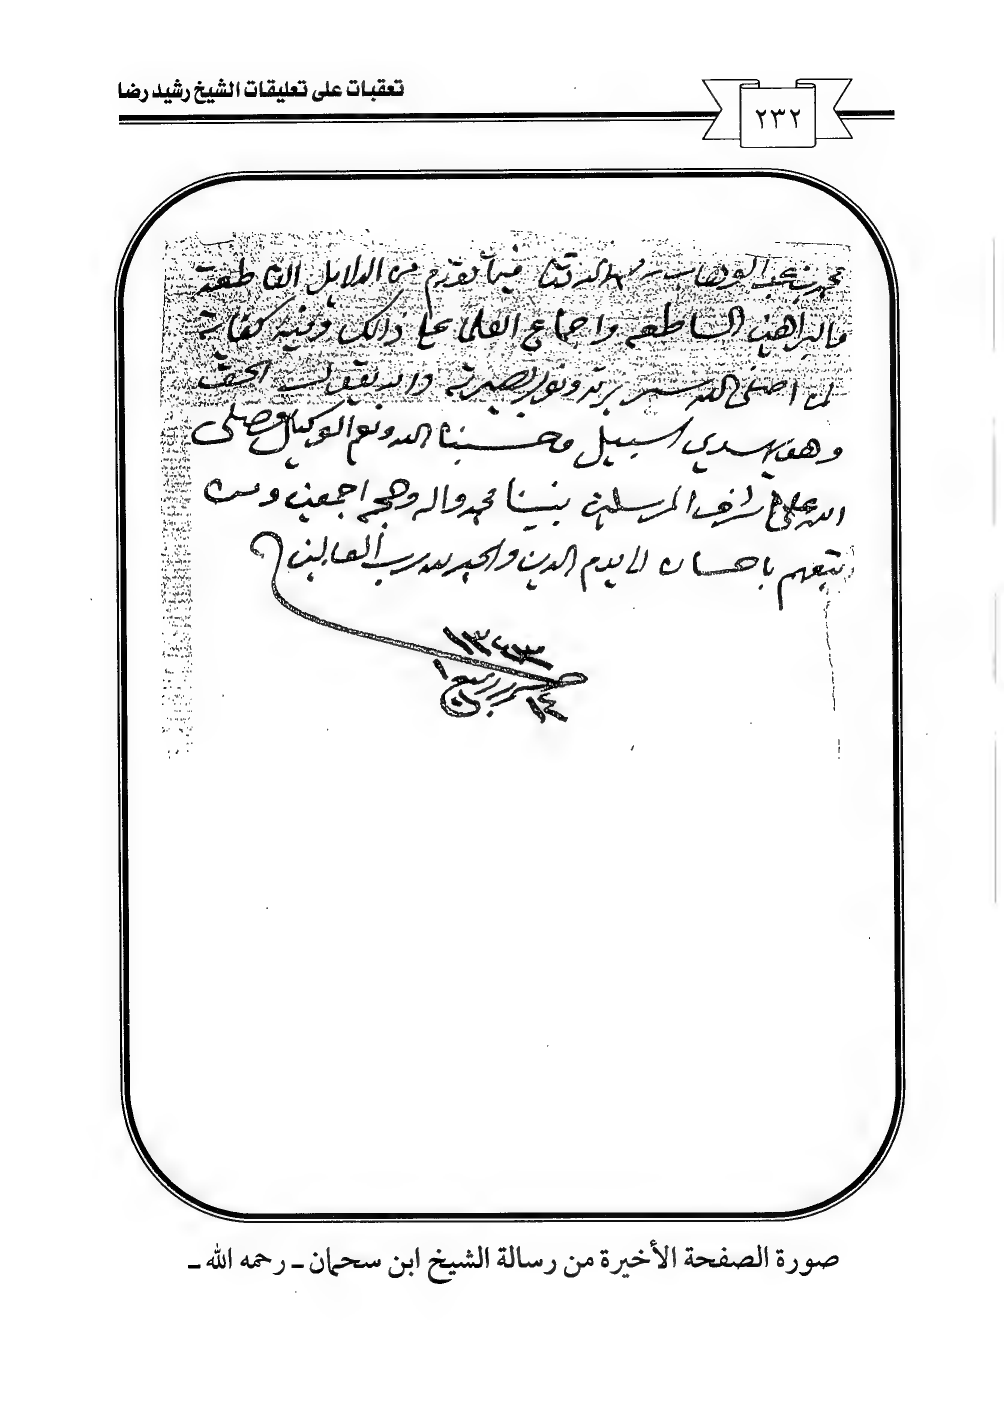 تعقبات على تعليقات الشيخ رشيد رضا
٢٣٢
محمد بن عبد الوهاب فيما تقدم من الدلايل القاطعة
والبراهين الساطعه واجماع العلما على ذالك وفيه كفاية
لمن الله ونور بصيرته والله يقول الحق
وهو يهدي السبيل وحسبنا الله ونعم الوكيل وصلى
الله على اشرف المرسلين نبينا محمد واله وصحبه اجمعين ومن
تبعهم باحسان الى يوم الدين والحمد لله رب العالمين
١٣٤٣
صورة الصفحة الأخيرة من رسالة الشيخ ابن سحمان ـ رحمه الله ـ